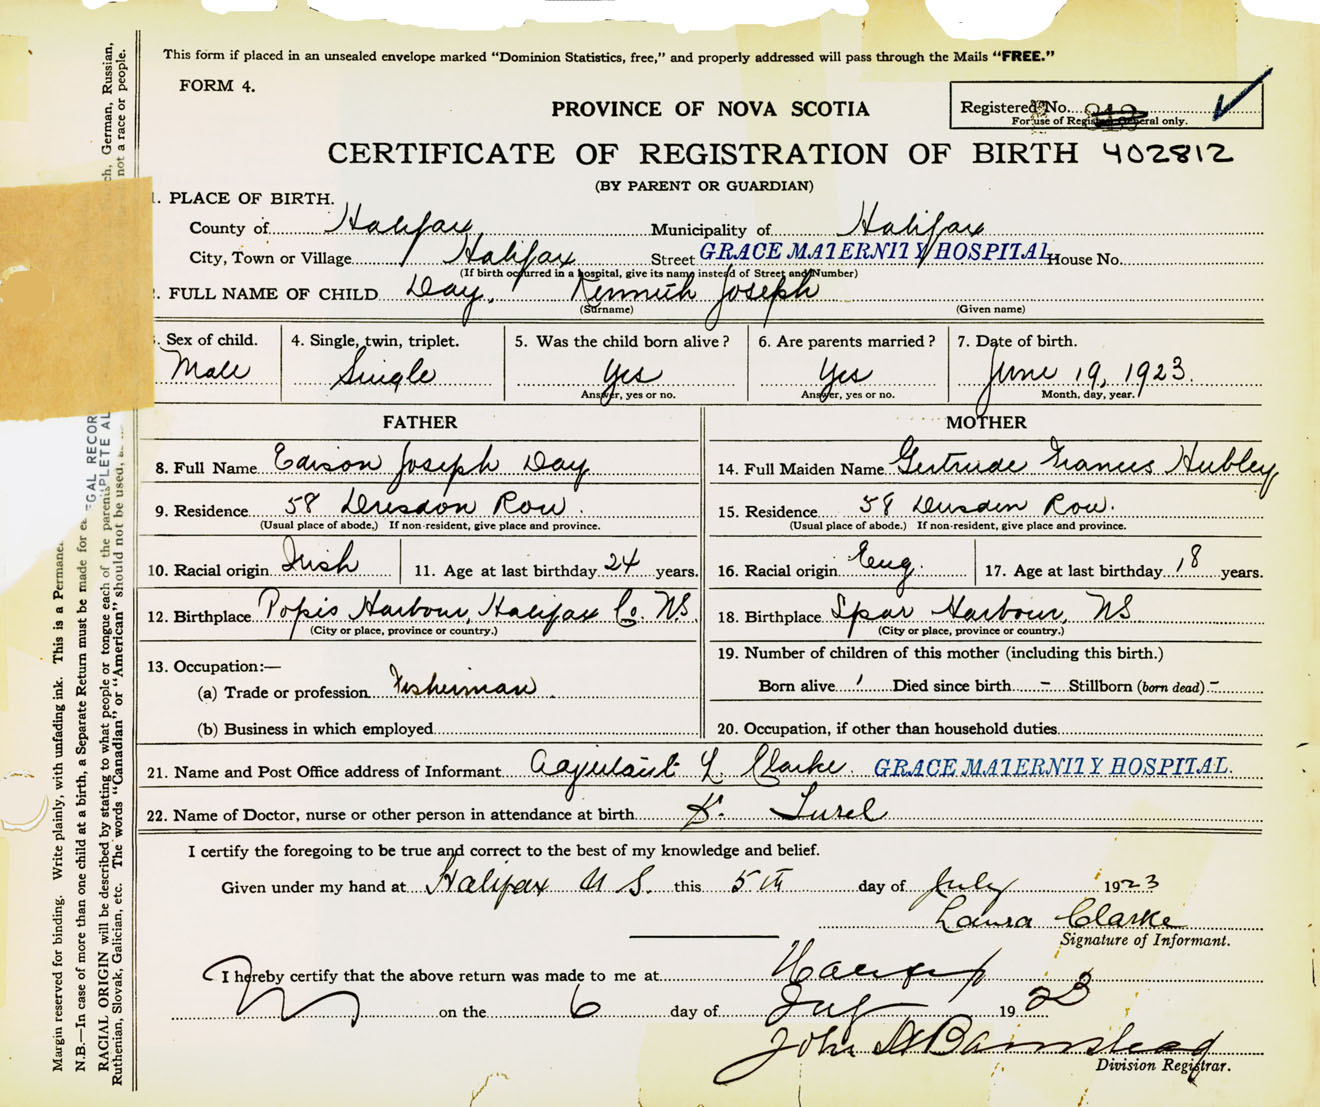 This form if placed in an unsealed envelope marked “Dominion Statistics, free,” and properly addressed will pass through the Mails “FREE.”
FORM 4.
PROVINCE OF NOVA SCOTIA
Registered No.
For use of Registrar General only.
CERTIFICATE OF REGISTRATION OF BIRTH 402812
(BY PARENT OR GUARDIAN)
1. PLACE OF BIRTH.
County of Halifax Municipality of Halifax
City, Town or Village Halifax Street GRACE MATERNITY HOSPITAL House No.
(If birth occurred in a hospital, give its name instead of Street and Number)
2. FULL NAME OF CHILD Day, Kenneth Joseph
(Surname) (Given name)
3. Sex of child. Male
4. Single, twin, triplet. Single
5. Was the child born alive? Yes
Answer, yes or no.
6. Are parents married? Yes
Answer, yes or no.
7. Date of birth. June 19, 1923.
Month, day, year.
FATHER
8. Full Name Edison Joseph Day
9. Residence 58 Dresdon Row.
(Usual place of abode,) If non-resident, give place and province.
10. Racial origin Irish 11. Age at last birthday 24 years.
12. Birthplace Popis Harbour, Halifax Co. N.S.
(City or place, province or country.)
13. Occupation:—
(a) Trade or profession Fisherman
(b) Business in which employed
MOTHER
14. Full Maiden Name Gertrude Frances Hubley
15. Residence 58 Dresden Row.
(Usual place of abode.) If non-resident, give place and province.
16. Racial origin Eng. 17. Age at last birthday 18 years.
18. Birthplace Spar Harbour, NS
(City or place, province or country.)
19. Number of children of this mother (including this birth.)
Born alive 1 Died since birth - Stillborn (born dead) -
20. Occupation, if other than household duties
21. Name and Post Office address of Informant Adjutant L. Clarke. GRACE MATERNITY HOSPITAL.
22. Name of Doctor, nurse or other person in attendance at birth
I certify the foregoing to be true and correct to the best of my knowledge and belief.
Given under my hand at Halifax N S. this 5th day of July 1923
Laura Clarke
Signature of Informant.
I hereby certify that the above return was made to me at Halifax
on the 6 day of July 1923
John A Barnstead
Division Registrar.
Margin reserved for binding. Write plainly, with unfading ink. This is a Permanent
N.B.—In case of more than one child at a birth, a Separate Return must be made for
RACIAL ORIGIN will be described by stating to what people or tongue each of the parents
German, Russian,
Ruthenian, Slovak, Galician, etc. The words “Canadian” or “American” should not be used,
not a race or people.